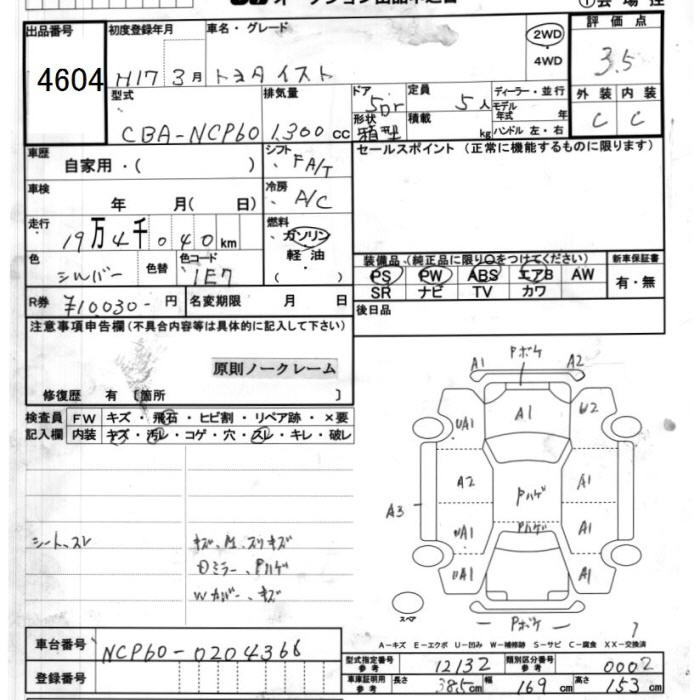 出品番号
4604
初度登録年月
H17 3月
車名・グレード
トヨタ イスト
2WD
・4WD
評価点
3.5
外装 内装
C C
型式
CBA-NCP60
排気量
1.300 cc
ドア
5Dr
形状
箱型
定員
5人
積載
kg
ディーラー・並行
モデル
年式 年
ハンドル 左・右
車歴
自家用・( )
シフト
FA/T
セールスポイント (正常に機能するものに限ります)
車検
年 月( 日)
冷房
A/C
走行
19万4千040km
燃料
ガソリン
軽油
( )
色
シルバー
色替
色コード
1E7
装備品 (純正品に限り○をつけてください)
PS PW ABS エアB AW
SR ナビ TV カワ
新車保証書
有・無
R券
¥10030- 円
名変期限 月 日
後日品
注意事項申告欄(不具合内容等は具体的に記入して下さい)
原則ノークレーム
修復歴 有〔箇所 〕
検査員
記入欄
FW キズ・飛石・ヒビ割・リペア跡・×要
内装 キズ・汚レ・コゲ・穴・スレ・キレ・破レ
シート、スレ
Dミラー、Pハゲ
Wカバー、キズ
A1 Pボケ A2
UA1 A1 W2
A2 Pハゲ A1
A3
A1
Pハゲ
UA1 A1
スペア
Pボケ
A-キズ E-エクボ U-凹み W-補修跡 S-サビ C-腐食 XX-交換済
車台番号
NCP60-0204366
登録番号
型式指定番号
参考
12132
類別区分番号
参考
0002
車庫証明用
参考
長さ 385cm 幅 169cm 高さ 153cm